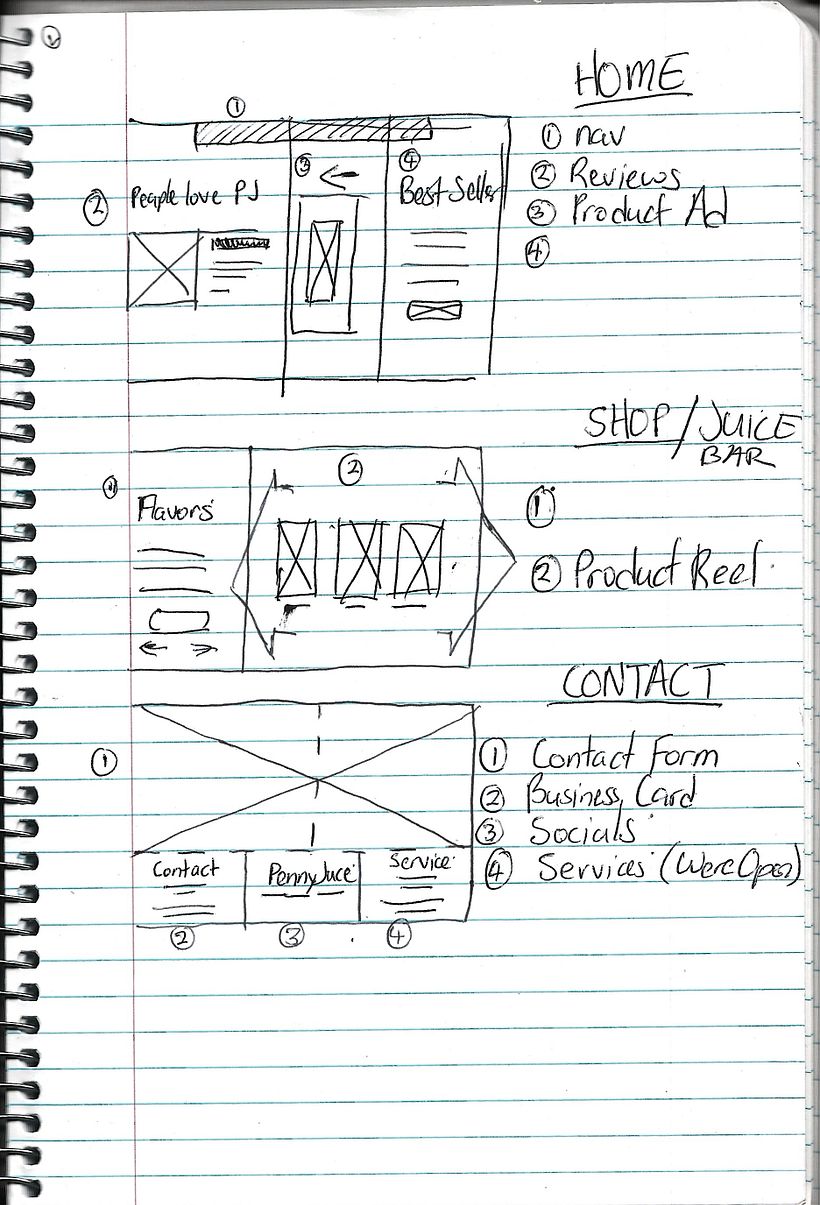 HOME
①
① nav
② Reviews
③ Product Ad
④
②
People love PJ
③
④
Best Seller
SHOP/JUICE
BAR
①
Flavors
②
①
② Product Reel
CONTACT
①
① Contact Form
② Business Card
③ Socials
④ Services (Were Open)
Contact
PennyJuce
Service
②
③
④